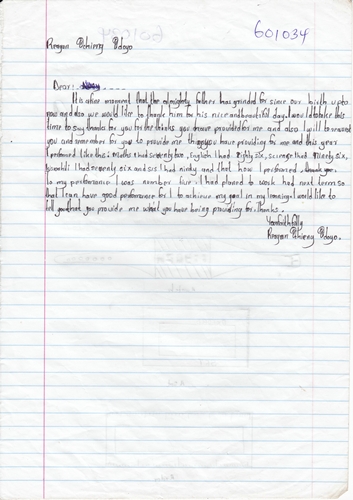 601034
Reagan Ochieng Odoyo
Dear:
It is after moment that the almighty father has guided for since our birth upto
now and also we would like to thank him for his nice and beautiful day. I would take this
time to say thanks for you for the thinks you have provided for me and also I will to reward
you and remember for you so provide me things you have providing for me and this year
I preformed like this: Maths I had seventy five, English I had Eighty six, science I had Ninety six,
kiswahili I had seventy six and s.s I had ninty and that how I preformed. thank you.
In my performance I was number five. I had planed to work had next term so
that I can have good performance for I to achieve my goal in my learning. I would like to
tell you that you provide me what you have being providing for. thanks.
Your faithfully
Reagan Ochieng Odoyo.